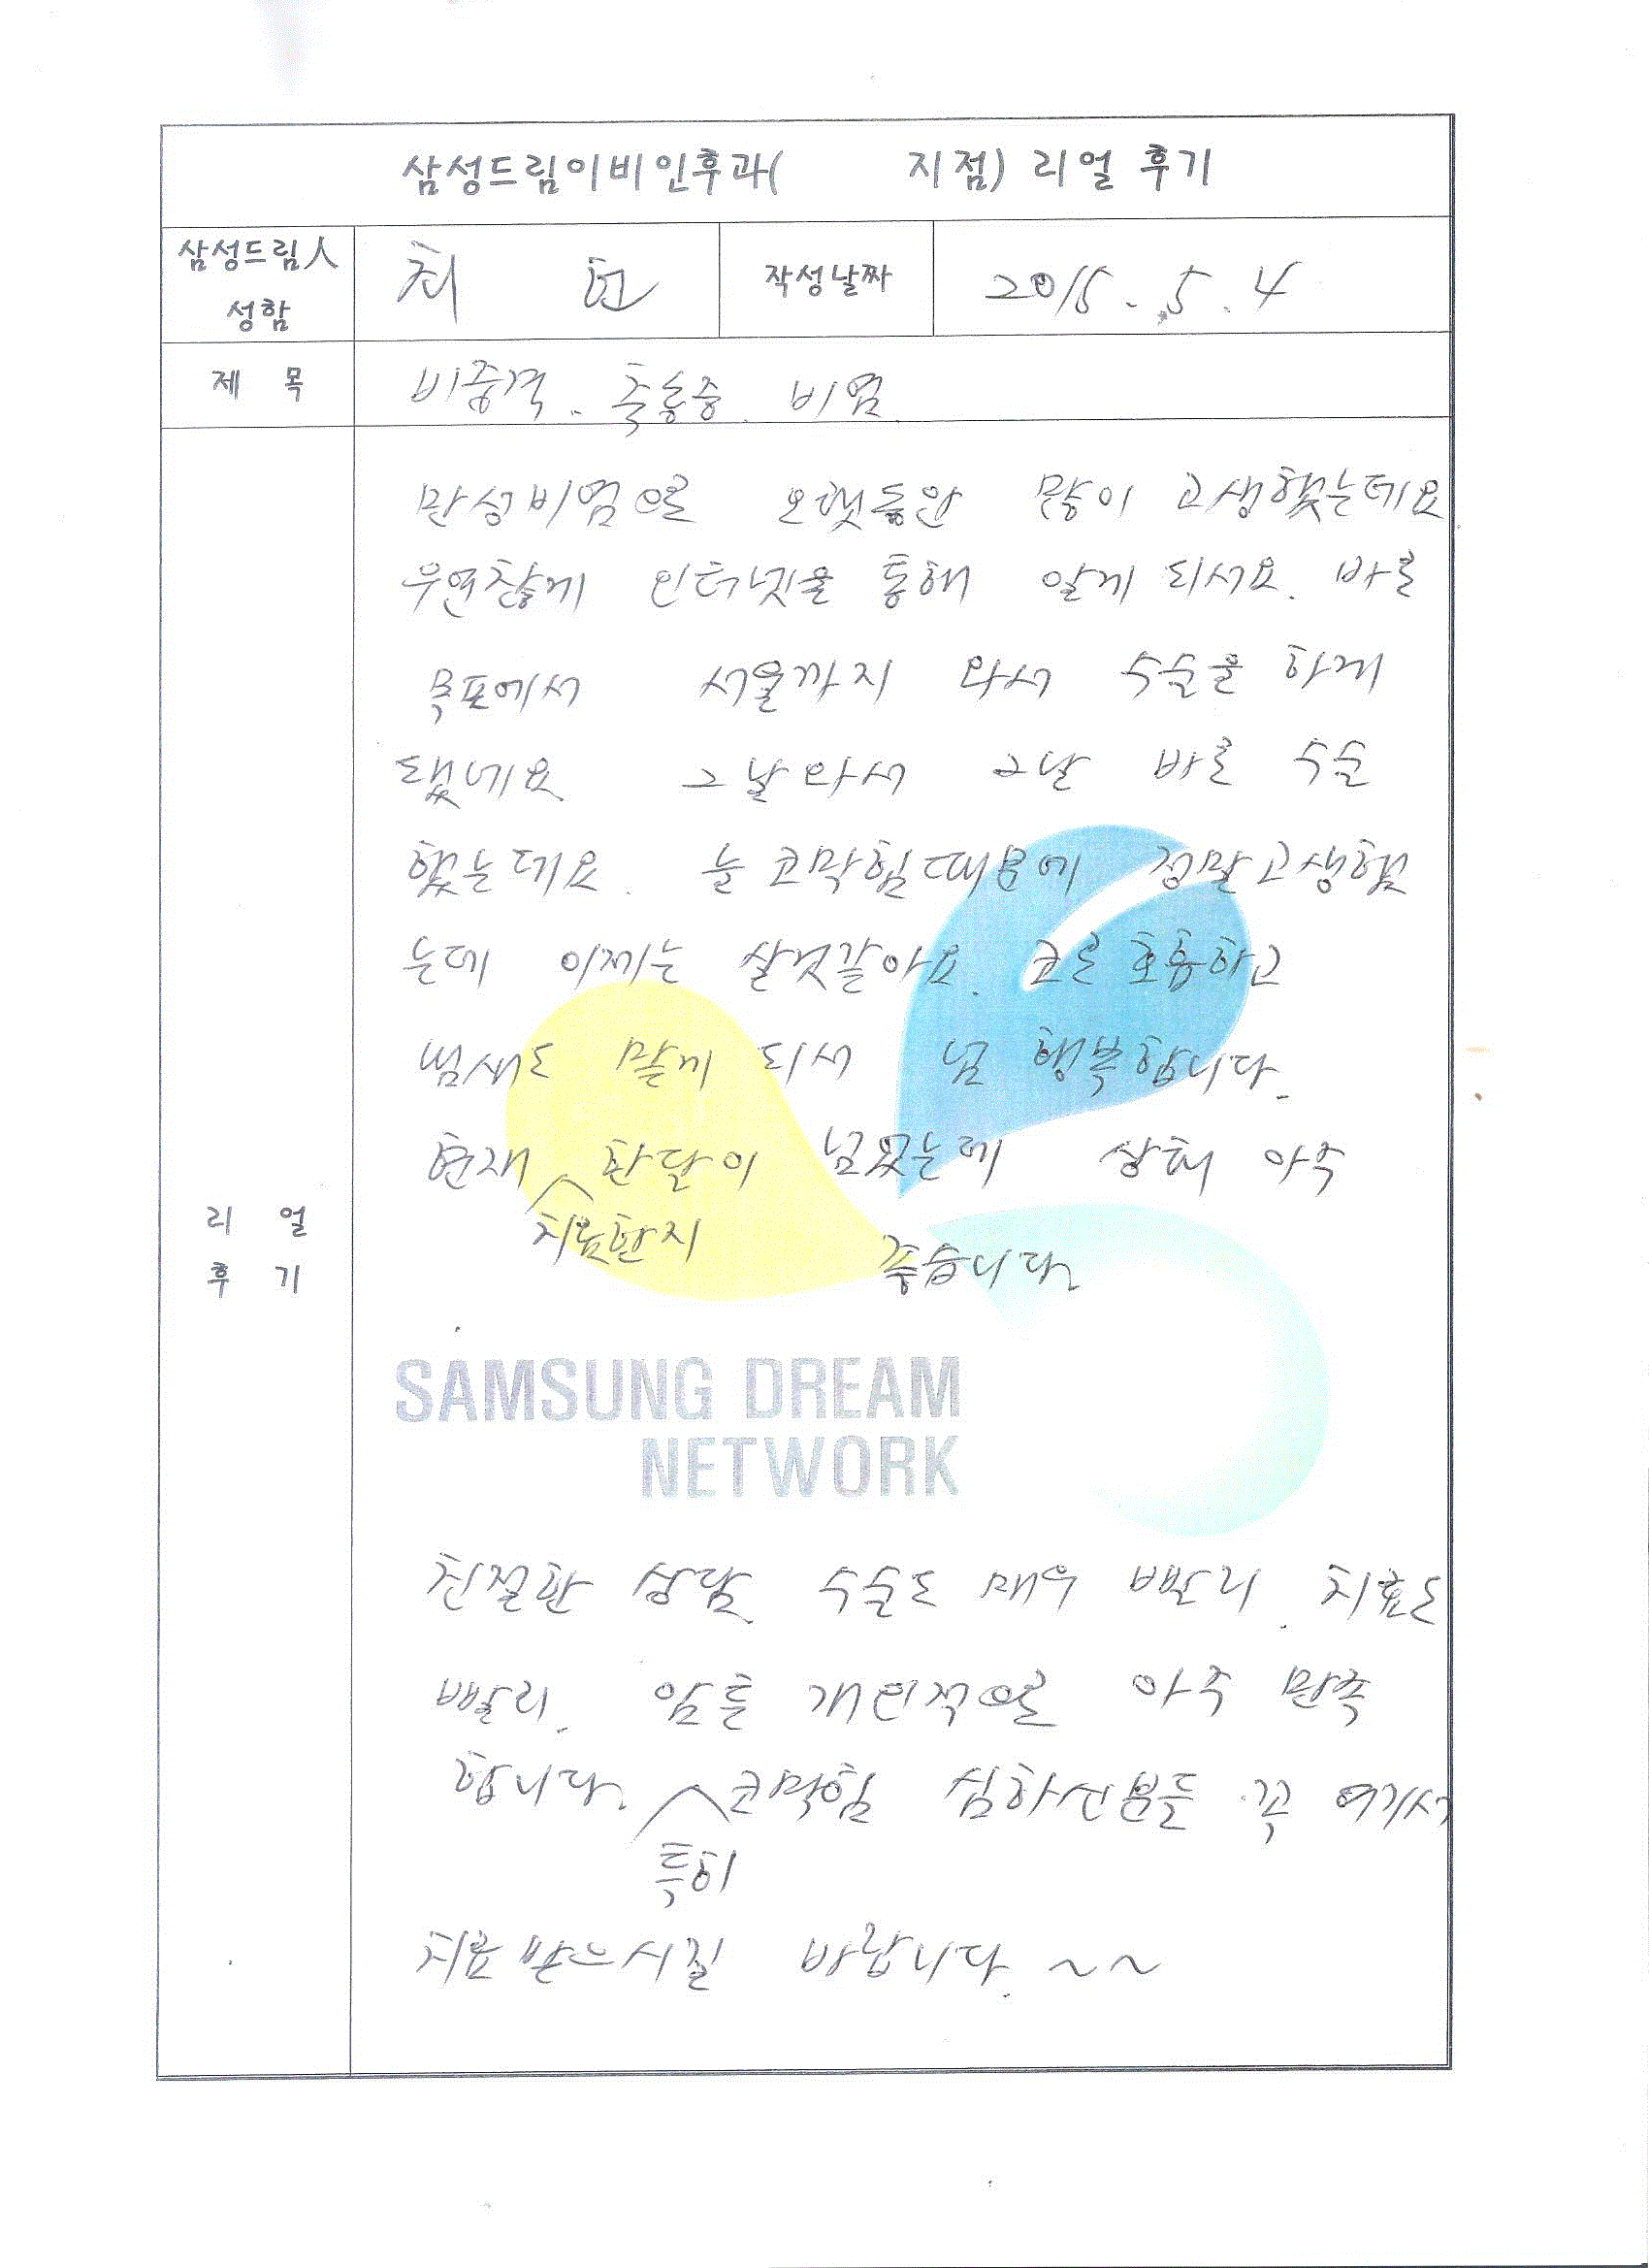 삼성드림이비인후과( 지점) 리얼 후기
삼성드림人
성함
최 현
작성날짜
2015. 5. 4
제 목
비중격. 축농증. 비염
만성비염으로 오랫동안 많이 고생했는데요
우연찮게 인터넷을 통해 알게 되서요. 바로
목포에서 서울까지 와서 수술을 하게
됐네요. 그날 와서 그날 바로 수술
했는데요. 늘 코막힘때문에 정말 고생했
는데 이제는 살것같아요. 코로 호흡하고
냄새도 맡게 되서 넘 행복합니다.
현재 한달이 넘었는데 상태 아주
치료한지
좋습니다
리 얼
후 기
SAMSUNG DREAM
NETWORK
친절한 상담. 수술도 매우 빨리. 치료도
빨리. 암튼 개인적으로 아주 만족
합니다. 코막힘 심하신분들 꼭 여기서
특히
치료 받으시길 바랍니다. ~~